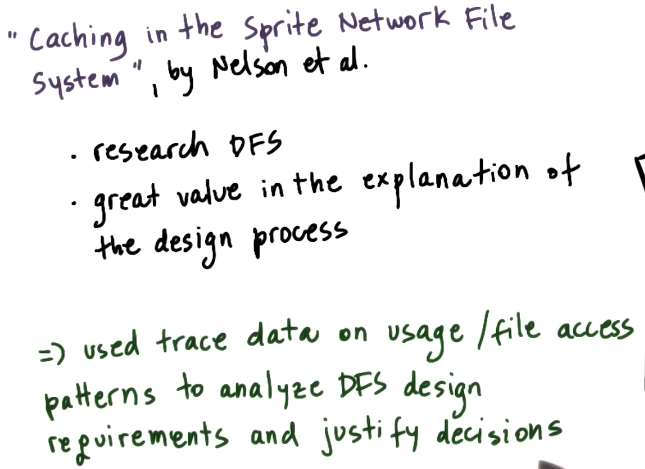 "Caching in the Sprite Network File
System", by Nelson et al.
· research DFS
· great value in the explanation of
the design process
=> used trace data on usage/file access
patterns to analyze DFS design
requirements and justify decisions